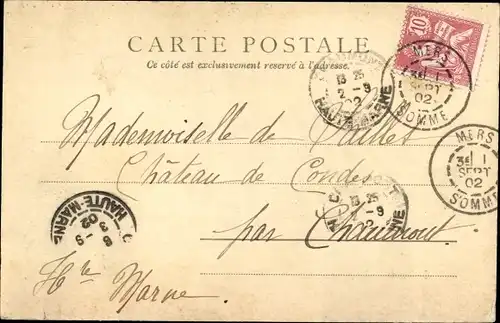 CARTE POSTALE
Ce côté est exclusivement reservé à l'adresse.
10
MERS
1
SEPT
02
SOMME
13 25
2 - 9
02
HAUTE-MARNE
Mademoiselle de
Château de Condes
MERS
3E 1
SEPT
02
SOMME
13 25
-9
par Chaumont
HAUTE-MARNE
02
3
6 - 9
Hte Marne